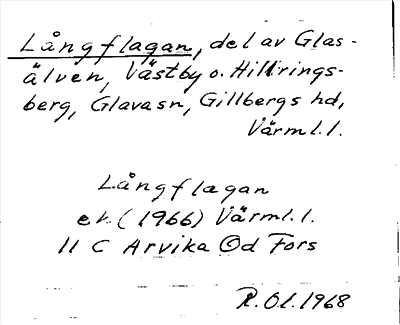 Långflagan, del av Glas-
älven, Västby o. Hillrings-
berg, Glava sn, Gillbergs hd,
Värml. l.
Långflagan
ek. (1966) Värml. l.
11 C Arvika Ⓒd Fors
R. Ol. 1968